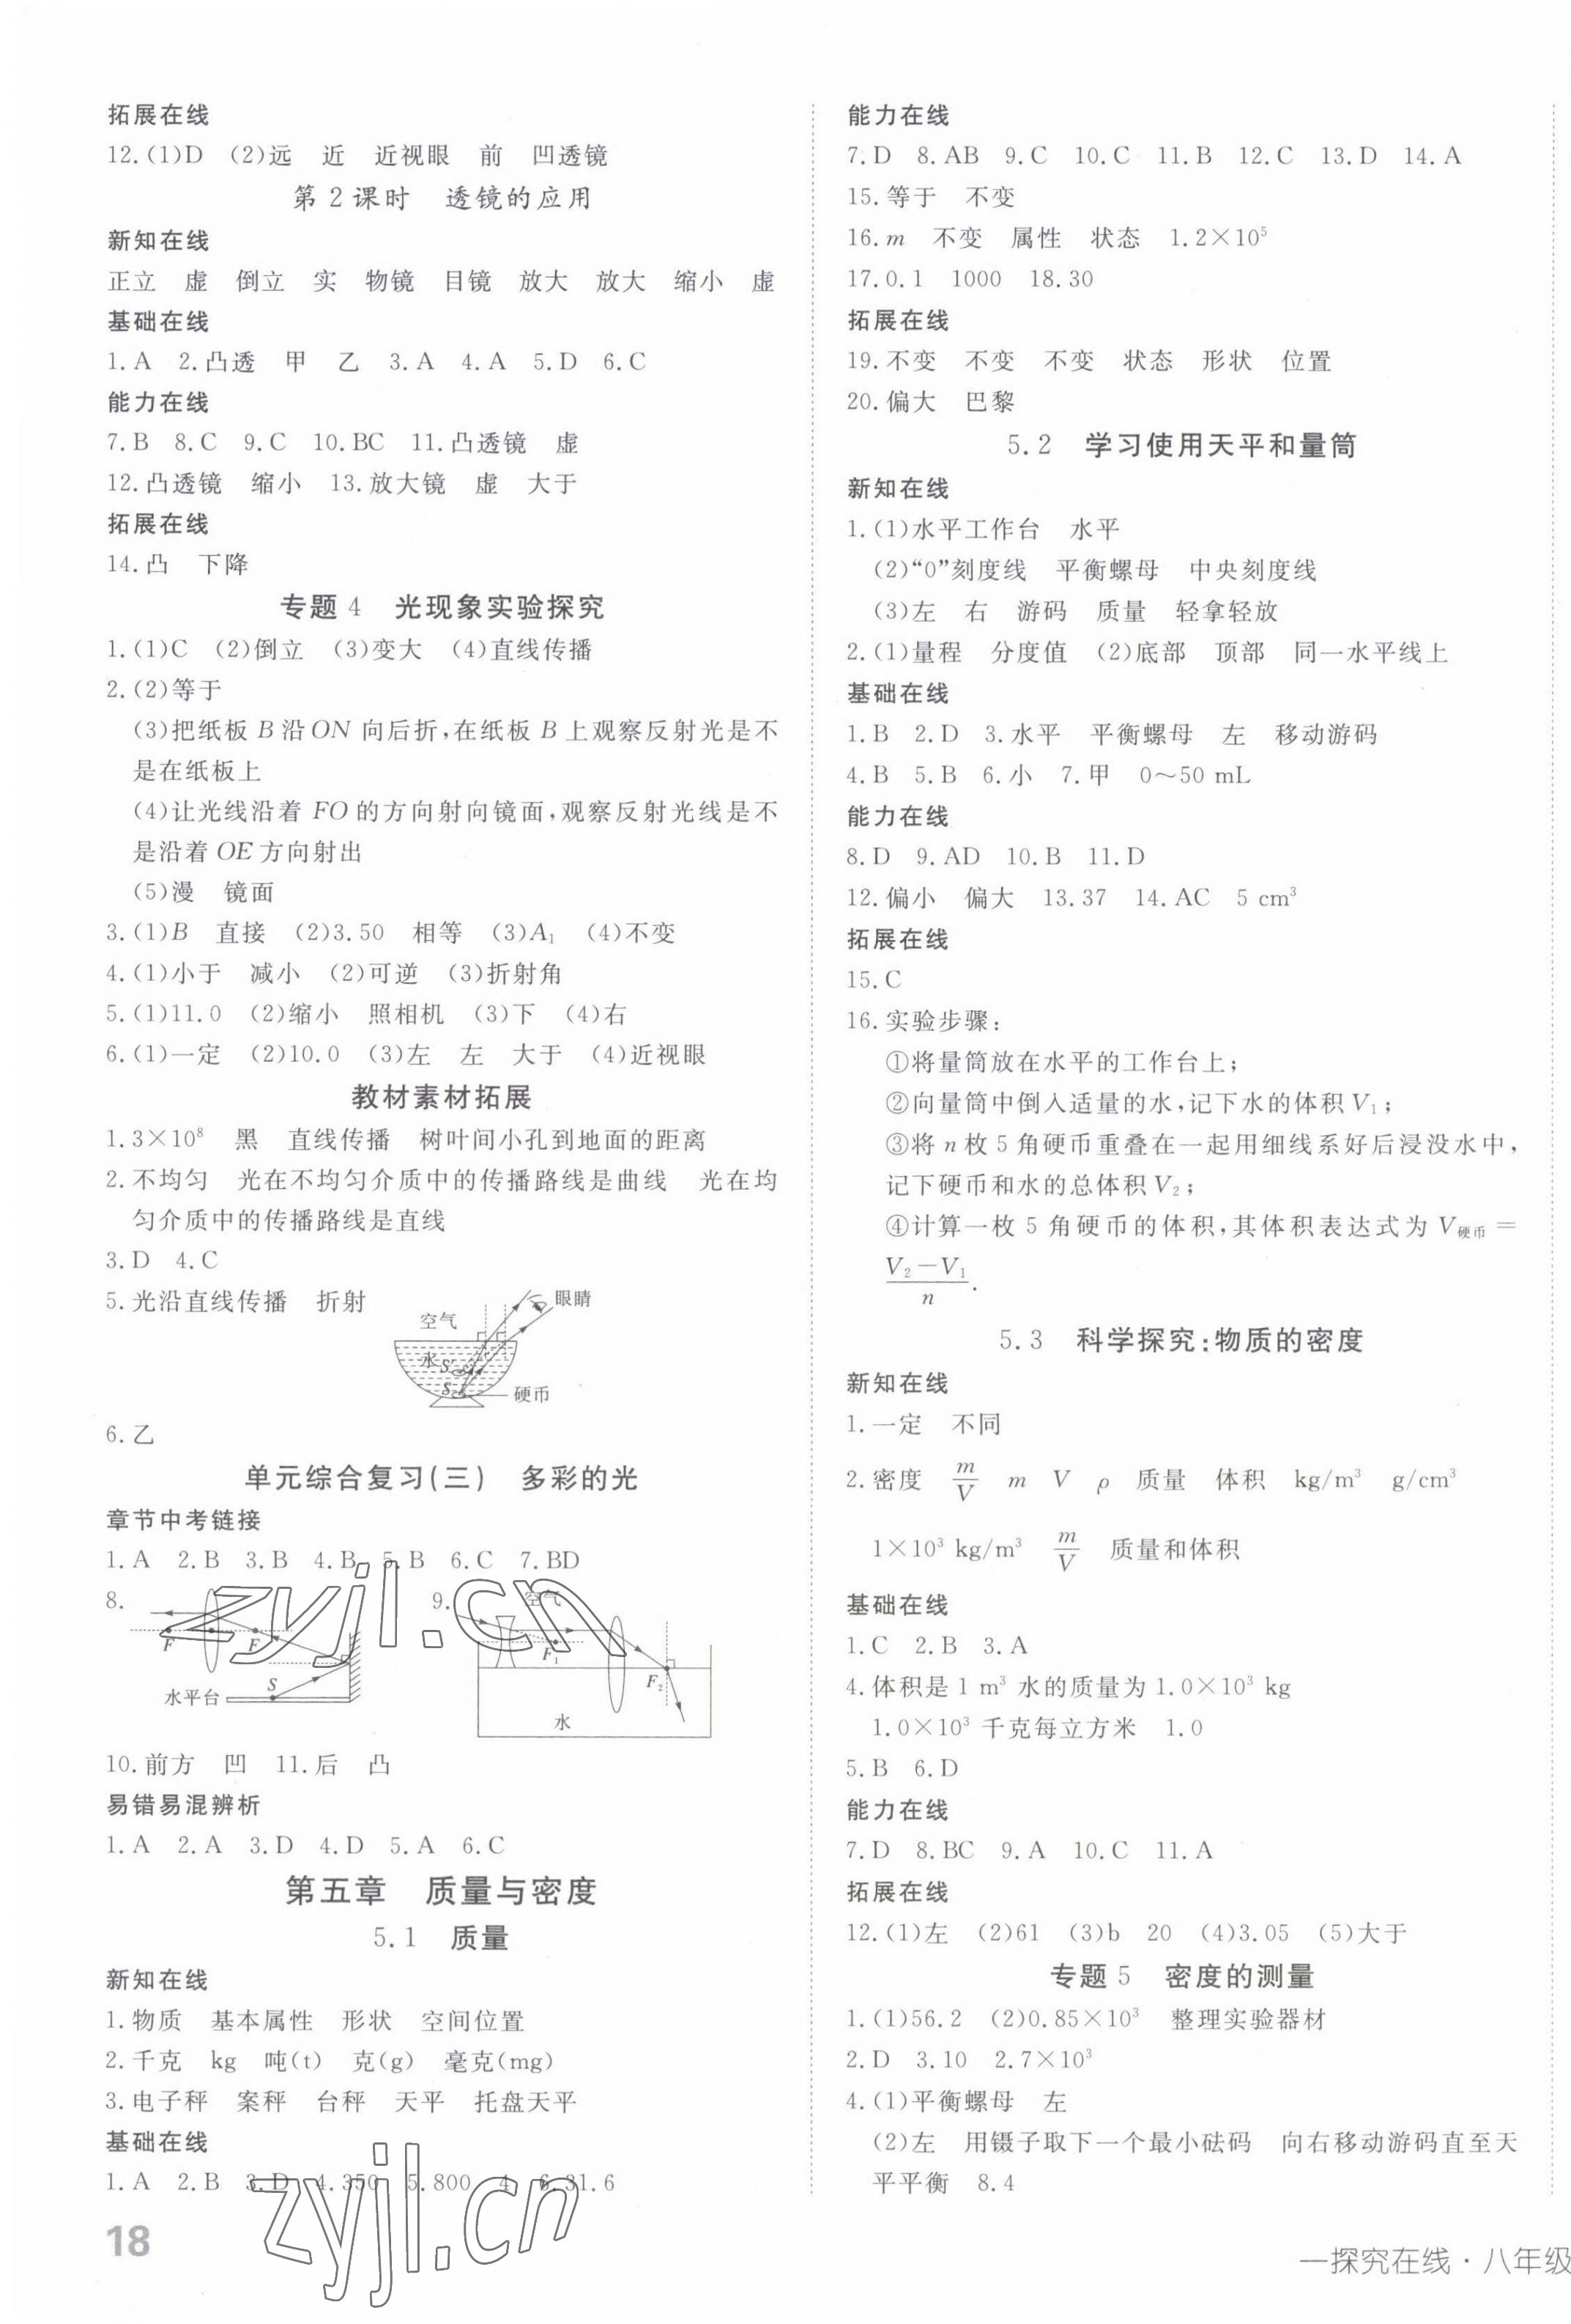 拓展在线
12.(1)D (2)远 近 近视眼 前 凹透镜
第2课时 透镜的应用
新知在线
正立 虚 倒立 实 物镜 目镜 放大 放大 缩小 虚
基础在线
1.A 2.凸透 甲 乙 3.A 4.A 5.D 6.C
能力在线
7.B 8.C 9.C 10.BC 11.凸透镜 虚
12.凸透镜 缩小 13.放大镜 虚 大于
拓展在线
14.凸 下降
专题4 光现象实验探究
1.(1)C (2)倒立 (3)变大 (4)直线传播
2.(2)等于
(3)把纸板B沿ON向后折,在纸板B上观察反射光是不
是在纸板上
(4)让光线沿着FO的方向射向镜面,观察反射光线是不
是沿着OE方向射出
(5)漫 镜面
3.(1)B 直接 (2)3.50 相等 (3)A₁ (4)不变
4.(1)小于 减小 (2)可逆 (3)折射角
5.(1)11.0 (2)缩小 照相机 (3)下 (4)右
6.(1)一定 (2)10.0 (3)左 左 大于 (4)近视眼
教材素材拓展
1.3×10⁸ 黑 直线传播 树叶间小孔到地面的距离
2.不均匀 光在不均匀介质中的传播路线是曲线 光在均
匀介质中的传播路线是直线
3.D 4.C
5.光沿直线传播 折射
眼睛
空气
水 S′
S
硬币
6.乙
单元综合复习(三) 多彩的光
章节中考链接
1.A 2.B 3.B 4.B 5.B 6.C 7.BD
8.
F F
S
水平台
9.
空气
F₁
F₂
水
zyjl.cn
10.前方 凹 11.后 凸
易错易混辨析
1.A 2.A 3.D 4.D 5.A 6.C
第五章 质量与密度
5.1 质量
新知在线
1.物质 基本属性 形状 空间位置
2.千克 kg 吨(t) 克(g) 毫克(mg)
3.电子秤 案秤 台秤 天平 托盘天平
基础在线
1.A 2.B 3.D 4.350 5.800 4 6.31.6
zyjl.cn
18
能力在线
7.D 8.AB 9.C 10.C 11.B 12.C 13.D 14.A
15.等于 不变
16.m 不变 属性 状态 1.2×10⁵
17.0.1 1000 18.30
拓展在线
19.不变 不变 不变 状态 形状 位置
20.偏大 巴黎
5.2 学习使用天平和量筒
新知在线
1.(1)水平工作台 水平
(2)“0”刻度线 平衡螺母 中央刻度线
(3)左 右 游码 质量 轻拿轻放
2.(1)量程 分度值 (2)底部 顶部 同一水平线上
基础在线
1.B 2.D 3.水平 平衡螺母 左 移动游码
4.B 5.B 6.小 7.甲 0～50 mL
能力在线
8.D 9.AD 10.B 11.D
12.偏小 偏大 13.37 14.AC 5 cm³
拓展在线
15.C
16.实验步骤:
①将量筒放在水平的工作台上;
②向量筒中倒入适量的水,记下水的体积V₁;
③将n枚5角硬币重叠在一起用细线系好后浸没水中,
记下硬币和水的总体积V₂;
④计算一枚5角硬币的体积,其体积表达式为V硬币=
V₂-V₁
n .
5.3 科学探究:物质的密度
新知在线
1.一定 不同
2.密度 m/V m V ρ 质量 体积 kg/m³ g/cm³
1×10³ kg/m³ m/V 质量和体积
基础在线
1.C 2.B 3.A
4.体积是1 m³水的质量为1.0×10³ kg
1.0×10³千克每立方米 1.0
5.B 6.D
能力在线
7.D 8.BC 9.A 10.C 11.A
拓展在线
12.(1)左 (2)61 (3)b 20 (4)3.05 (5)大于
专题5 密度的测量
1.(1)56.2 (2)0.85×10³ 整理实验器材
2.D 3.10 2.7×10³
4.(1)平衡螺母 左
(2)左 用镊子取下一个最小砝码 向右移动游码直至天
平平衡 8.4
一探究在线·八年级